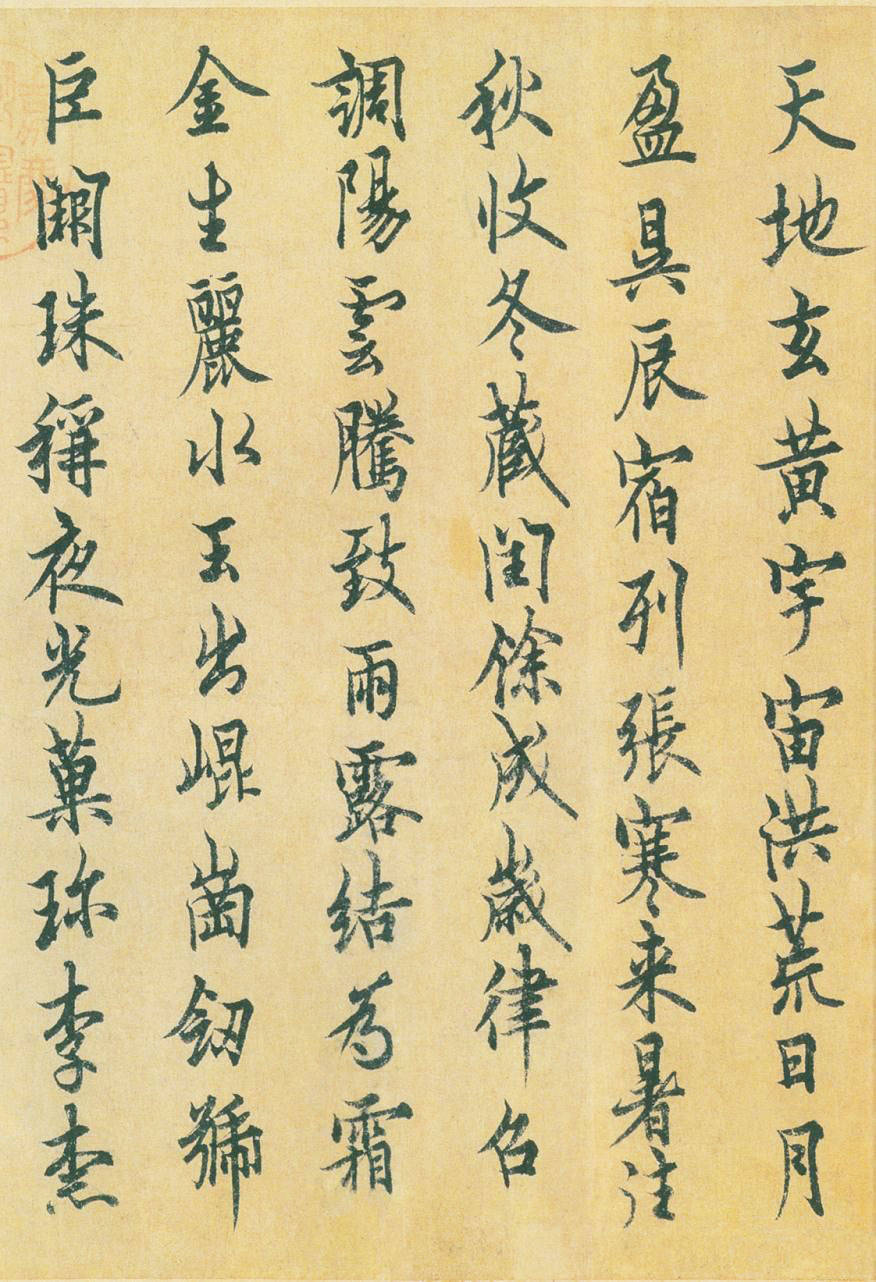 天地玄黃宇宙洪荒日月
盈昃辰宿列張寒来暑往
秋收冬蔵閏餘成歲律召
調陽雲騰致雨露結為霜
金生麗水玉出崐崗釼號
巨闕珠稱夜光菓珎李柰